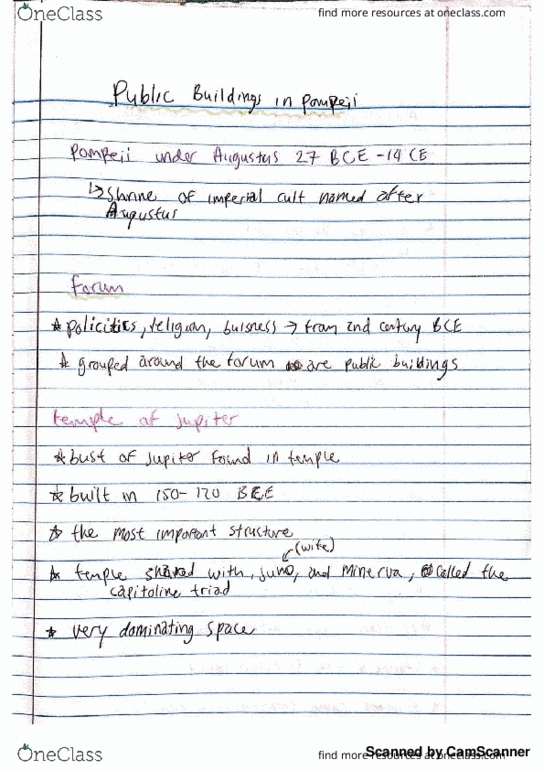 OneClass
find more resources at oneclass.com
Public Buildings in Pompeii
Pompeii under Augustus 27 BCE - 14 CE
↳ Shrine of imperial cult named after
Augustus
Forum
* policitics, religion, buisness → from 2nd century BCE
* grouped around the forum are public buildings
temple of Jupiter
* bust of Jupiter found in temple
* built in 150-120 BCE
* the most important structure
(wife)
* temple shared with, Juno, and Minerva, called the
capitoline triad
* very dominating space
OneClass
find more resources at oneclass.com
Scanned by CamScanner